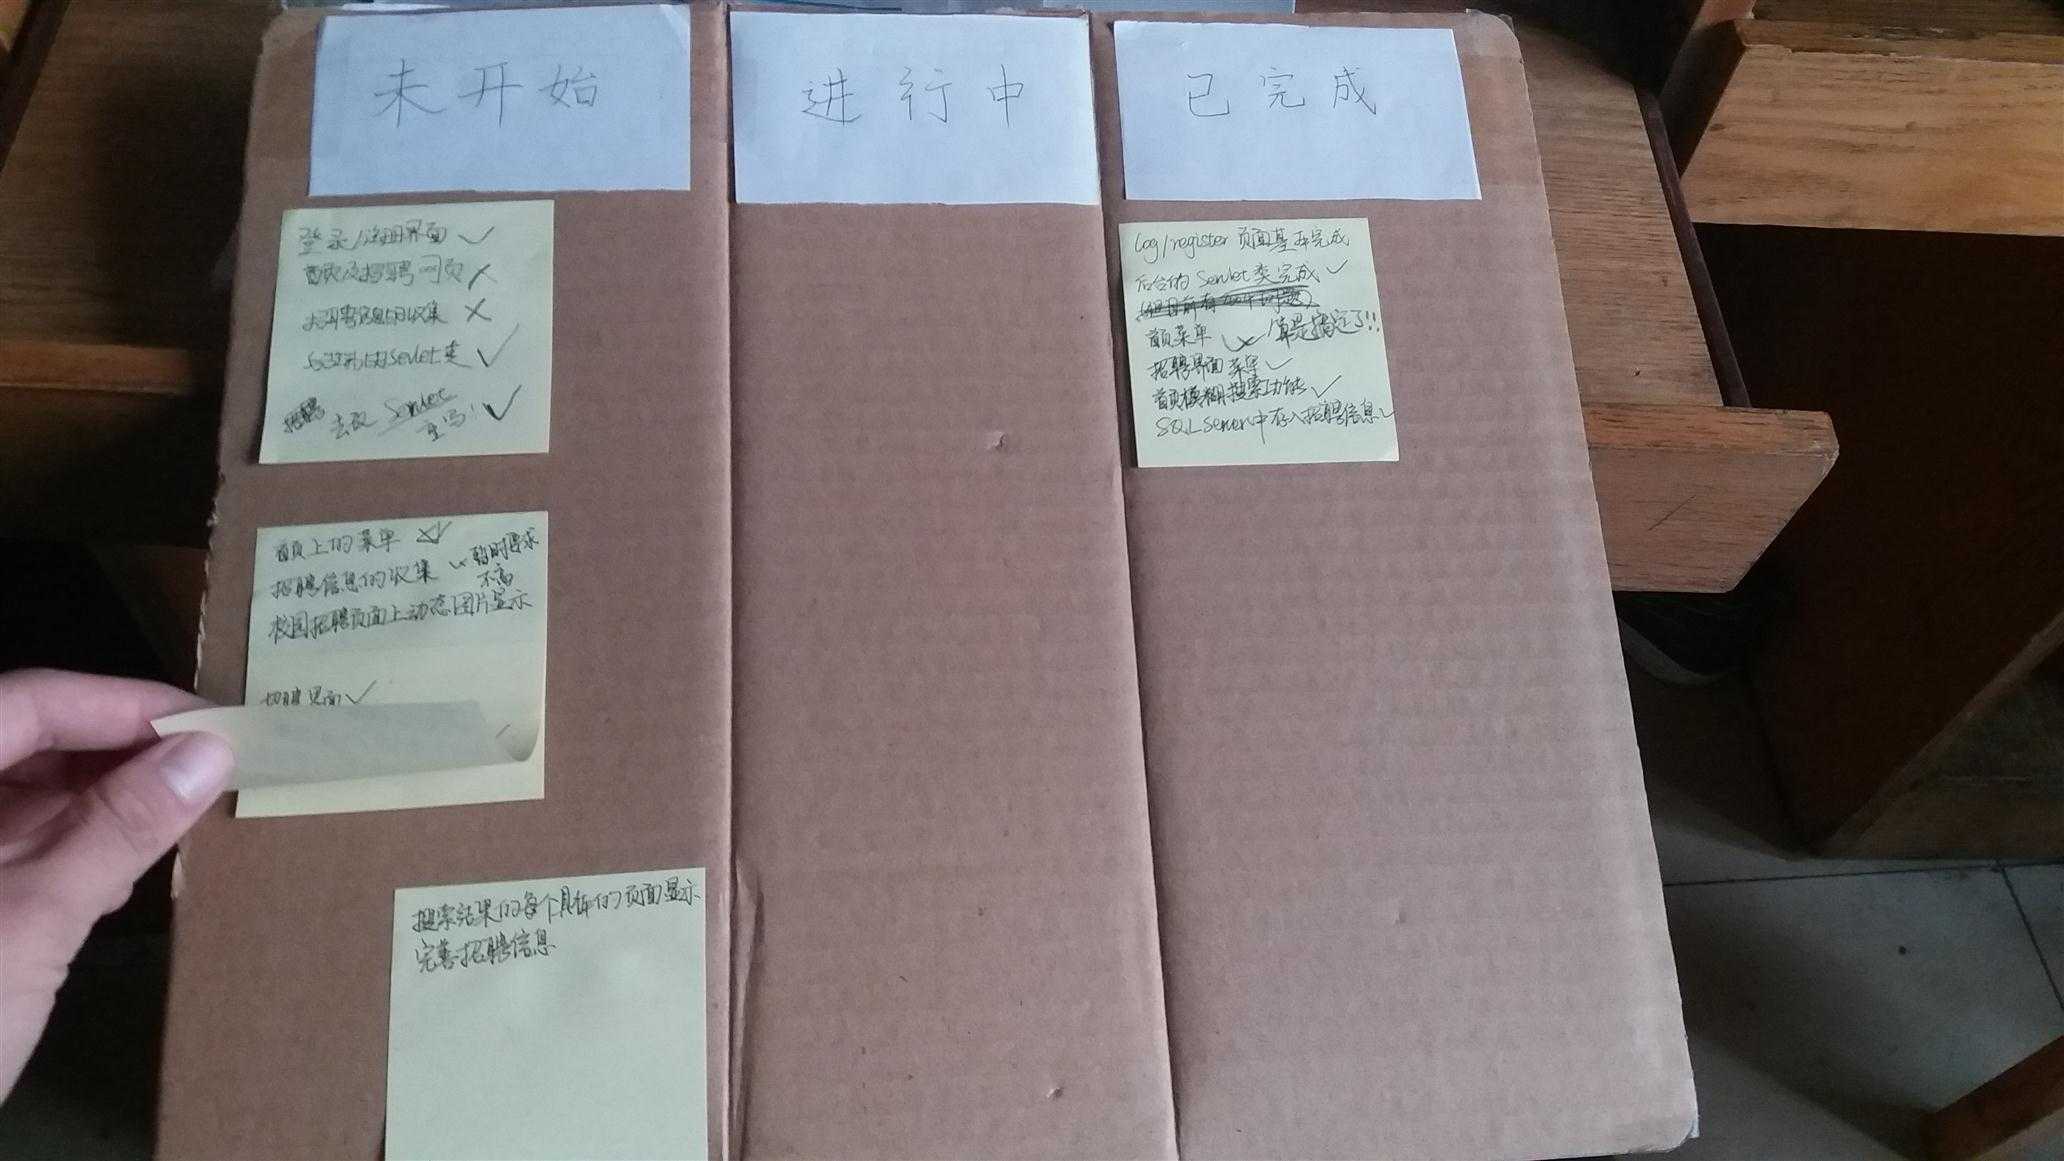 未开始
登录/注册界面 ✓
首页及招聘网页 ✗
招聘信息的收集 ✗
的Servlet类 ✓
招聘 去改 Servlet ✓
重写!
首页上的菜单
招聘信息的收集 ✓ 暂时要求
不高
校园招聘页面上动态图片显示
招聘界面 ✓
搜索结果的每个具体的页面显示
完善招聘信息
进行中
已完成
Log/register 页面基本完成
后台的 Servlet 类完成 ✓
首页菜单 ✓ 算是搞定了!!
招聘界面 菜单 ✓
首页模糊搜索功能 ✓
SQL Server中存入招聘信息 ✓